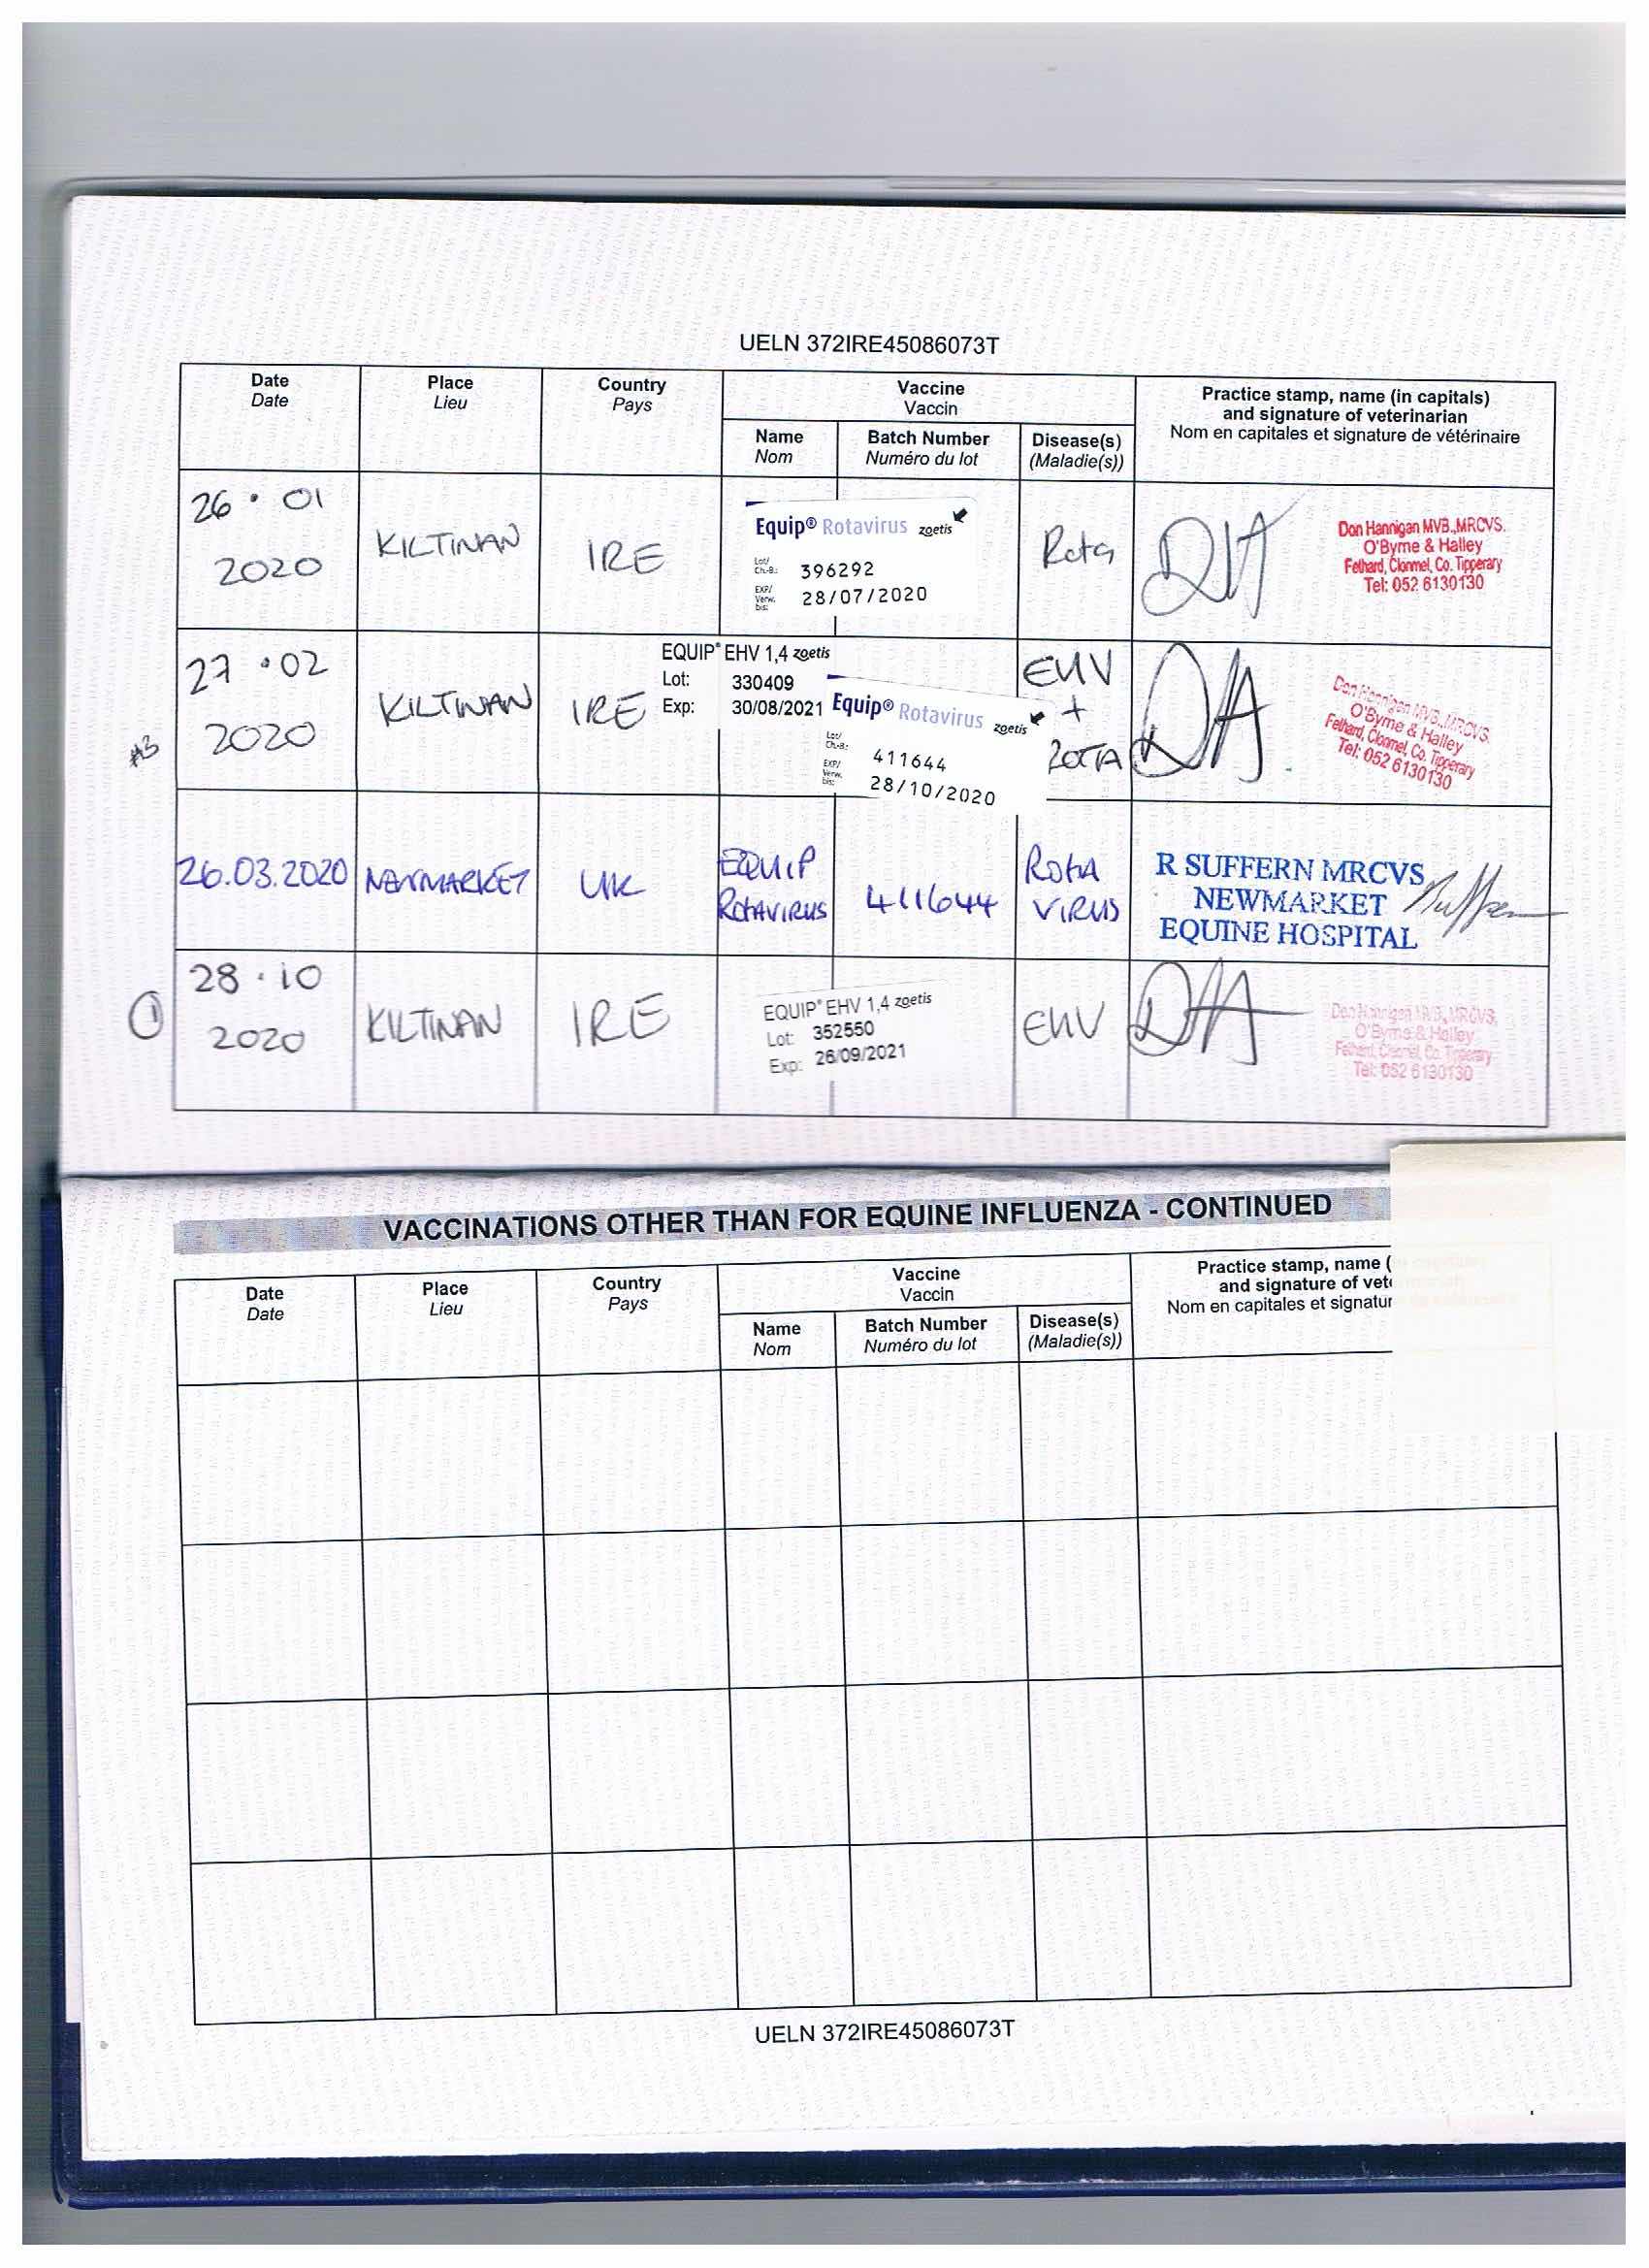 UELN 372IRE45086073T
Date
Date
Place
Lieu
Country
Pays
Vaccine
Vaccin
Name
Nom
Batch Number
Numéro du lot
Disease(s)
(Maladie(s))
Practice stamp, name (in capitals)
and signature of veterinarian
Nom en capitales et signature de vétérinaire
26 · 01
2020
KILTINAN
IRE
Equip® Rotavirus zoetis
Lot/
Ch.-B.: 396292
EXP/
Verw.
bis: 28/07/2020
Rota
DH
Don Hannigan MVB.,MRCVS.
O'Byrne & Halley
Fethard, Clonmel, Co. Tipperary
Tel: 052 6130130
#3
27 · 02
2020
KILTINAN
IRE
EQUIP® EHV 1,4 zoetis
Lot: 330409
Exp: 30/08/2021
Equip® Rotavirus zoetis
Lot/
Ch.-B.: 411644
EXP/
Verw.
bis: 28/10/2020
EHV
+
ROTA
DH
Don Hannigan MVB.,MRCVS.
O'Byrne & Halley
Fethard, Clonmel, Co. Tipperary
Tel: 052 6130130
26.03.2020
NEWMARKET
UK
EQUIP
ROTAVIRUS
411644
ROTA
VIRUS
R SUFFERN MRCVS
NEWMARKET
EQUINE HOSPITAL
①
28 · 10
2020
KILTINAN
IRE
EQUIP® EHV 1,4 zoetis
Lot: 352550
Exp: 26/09/2021
EHV
DH
Don Hannigan MVB.,MRCVS.
O'Byrne & Halley
Fethard, Clonmel, Co. Tipperary
Tel: 052 6130130
VACCINATIONS OTHER THAN FOR EQUINE INFLUENZA - CONTINUED
Date
Date
Place
Lieu
Country
Pays
Vaccine
Vaccin
Name
Nom
Batch Number
Numéro du lot
Disease(s)
(Maladie(s))
Practice stamp, name (
and signature of vet
Nom en capitales et signatur
UELN 372IRE45086073T